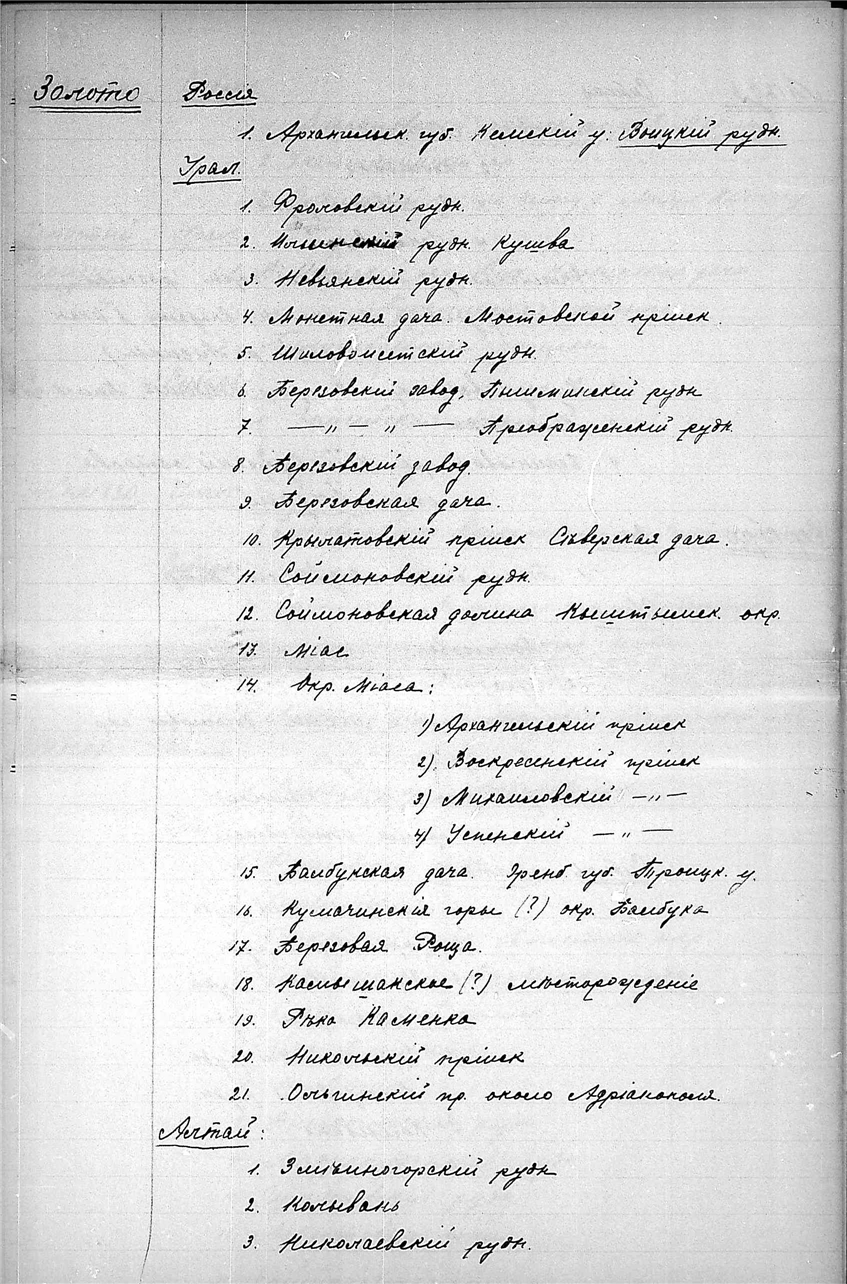 Золото Россія
1. Архангельск. губ. Кемскій у. Воицкій рудн.
Урал.
1. Фроловскій рудн.
2. рудн. Кушва
3. Невьянскій рудн.
4. Монетная дача. Мостовской пріиск.
5. Шиловоисетскій рудн.
6. Березовскій завод, Пышминскій рудн
7. — „ — „ — Преображенскій рудн.
8. Березовскій завод.
9. Березовская дача.
10. Крылатовскій пріиск Сѣверская дача.
11. Соймоновскій рудн.
12. Соймоновская долина Кыштымск. окр.
13. Міас
14. Окр. Міаса:
1) Архангельскій пріиск
2) Воскресенскій пріиск
3) Михаиловскій — „ —
4) Успенскій — „ —
15. Балбукская дача. Оренб. губ. Троицк. у.
16. Кумачинскія горы (?) окр. Балбука
17. Березовая Роща.
18. Камышакское (?) мѣсторожденіе
19. Рѣка Каменка
20. Никольскій пріиск
21. Ольгинскій пр. около Адріанополя.
Алтай:
1. Змѣиногорскій рудн
2. Колывань
3. Николаевскій рудн.